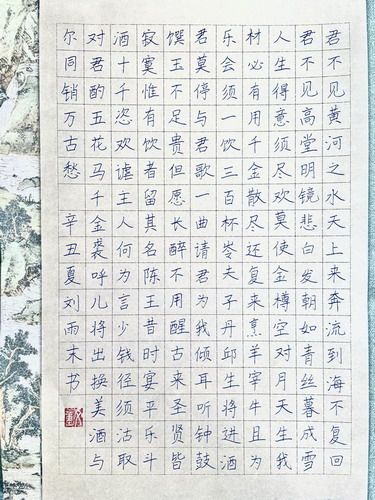 君不见黄河之水天上来奔流到海不复回
君不见高堂明镜悲白发朝如青丝暮成雪
人生得意须尽欢莫使金樽空对月天生我
材必有用千金散尽还复来烹羊宰牛且为
乐会须一饮三百杯岑夫子丹邱生将进酒
君莫停与君歌一曲请君为我倾耳听钟鼓
馔玉不足贵但愿长醉不用醒古来圣贤皆
寂寞惟有饮者留其名陈王昔时宴平乐斗
酒十千恣欢谑主人何为言少钱径须沽取
对君酌五花马千金裘呼儿将出换美酒与
尔同销万古愁 辛丑夏刘雨末书